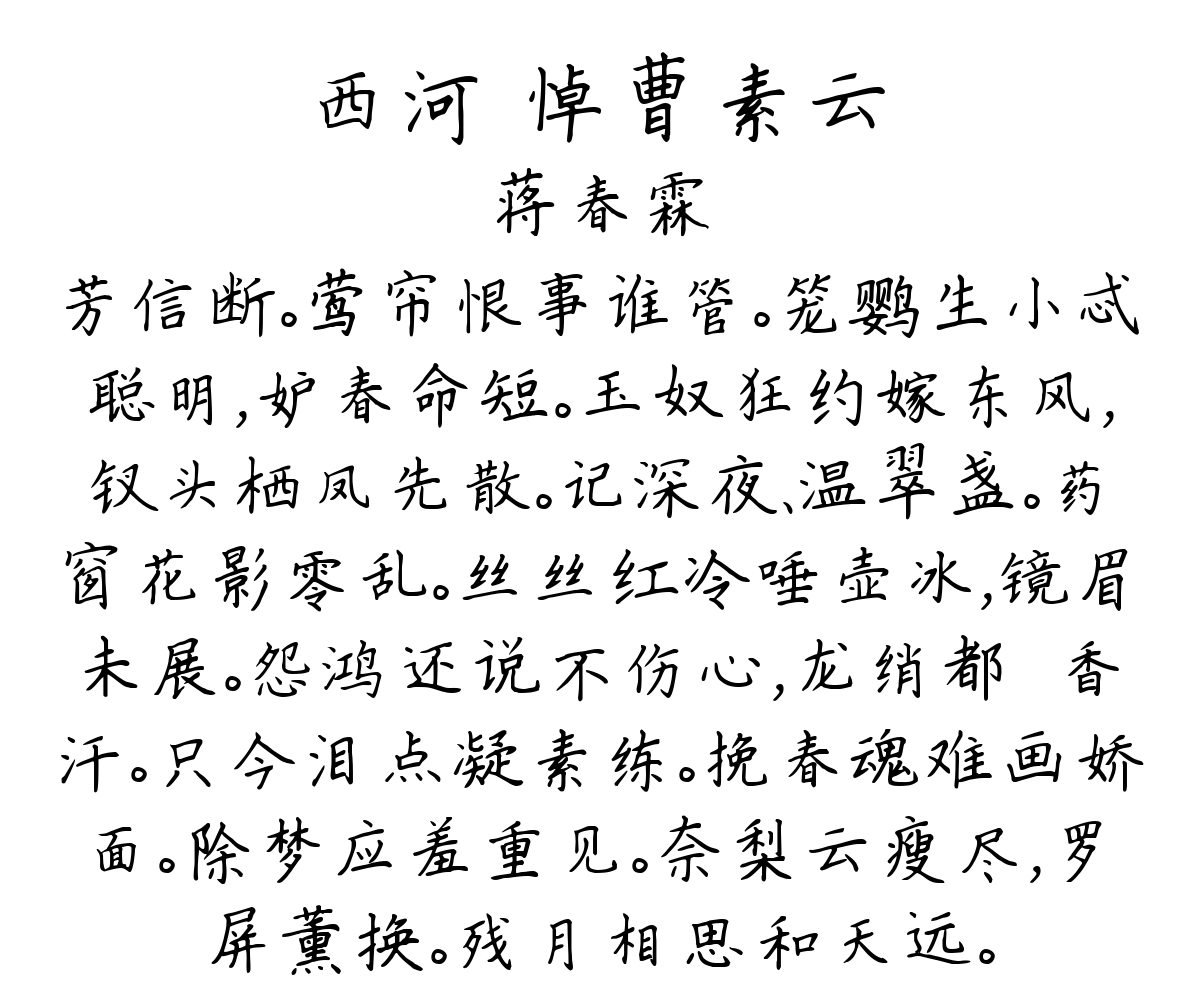 西河 悼曹素云
蒋春霖
芳信断。莺帘恨事谁管。笼鹦生小忒
聪明,妒春命短。玉奴狂约嫁东风,
钗头栖凤先散。记深夜、温翠盏。药
窗花影零乱。丝丝红冷唾壶冰,镜眉
未展。怨鸿还说不伤心,龙绡都 香
汗。只今泪点凝素练。挽春魂难画娇
面。除梦应羞重见。奈梨云瘦尽,罗
屏薰换。残月相思和天远。